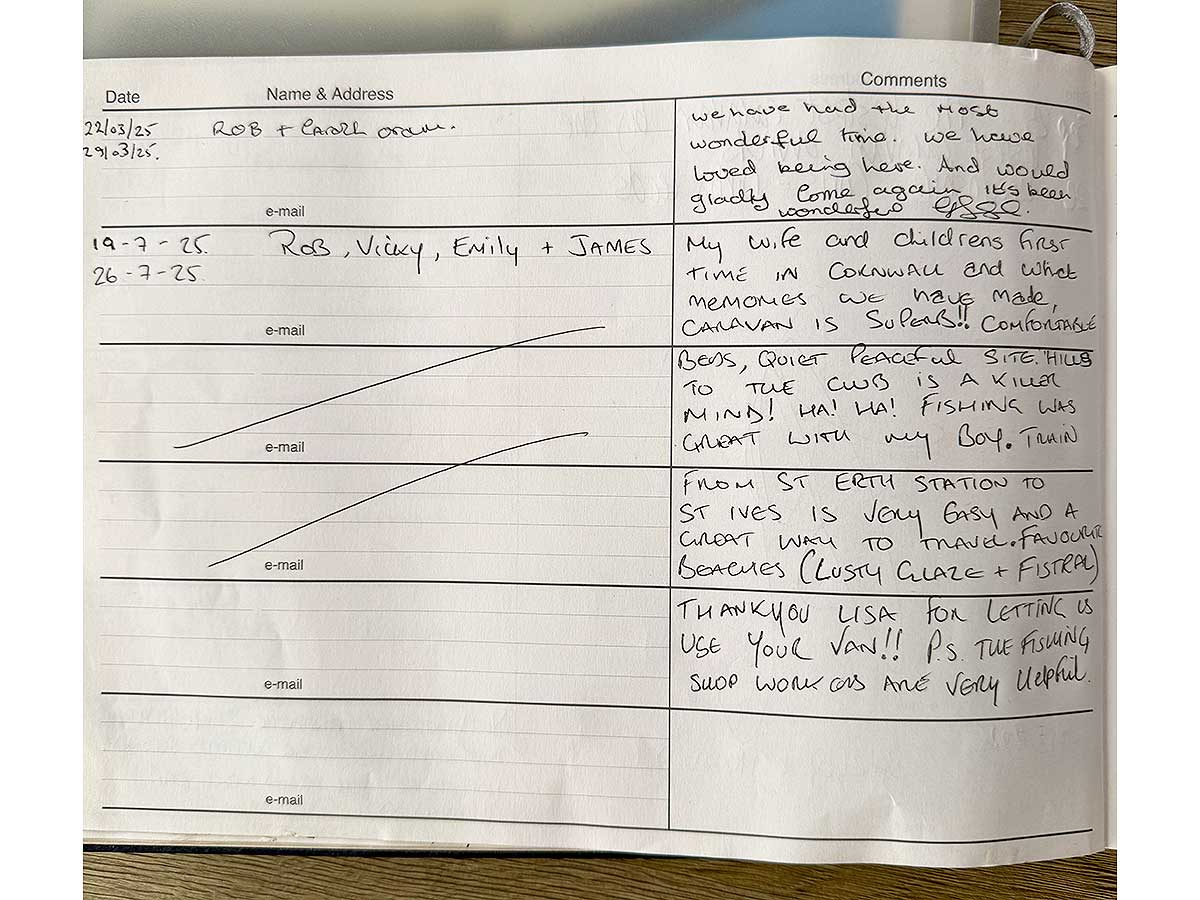 Date Name & Address Comments
22/03/25 ROB +
29/03/25.
we have had the most
wonderful time. we have
loved being here. And would
gladly come again it's been
wonderful
e-mail
19-7-25. ROB, Vicky, Emily + JAMES
26-7-25.
My wife and childrens first
TIME IN CORNWALL and what
MEMORIES WE have made,
CARAVAN IS SUPERB!! COMFORTABLE
e-mail
BEDS, QUIET PEACEFUL SITE. HILLS
TO THE CLUB IS A KILLER
MIND! HA! HA! FISHING WAS
GREAT WITH my Boy. TRAIN
e-mail
FROM ST ERTH STATION TO
ST IVES IS VERY EASY AND A
GREAT WAY TO TRAVEL. FAVOURITE
BEACHES (LUSTY GLAZE + FISTRAL)
e-mail
THANKYOU LISA FOR LETTING US
USE YOUR VAN!! P.S. THE FISHING
SHOP WORKERS ARE VERY Helpful.
e-mail
e-mail